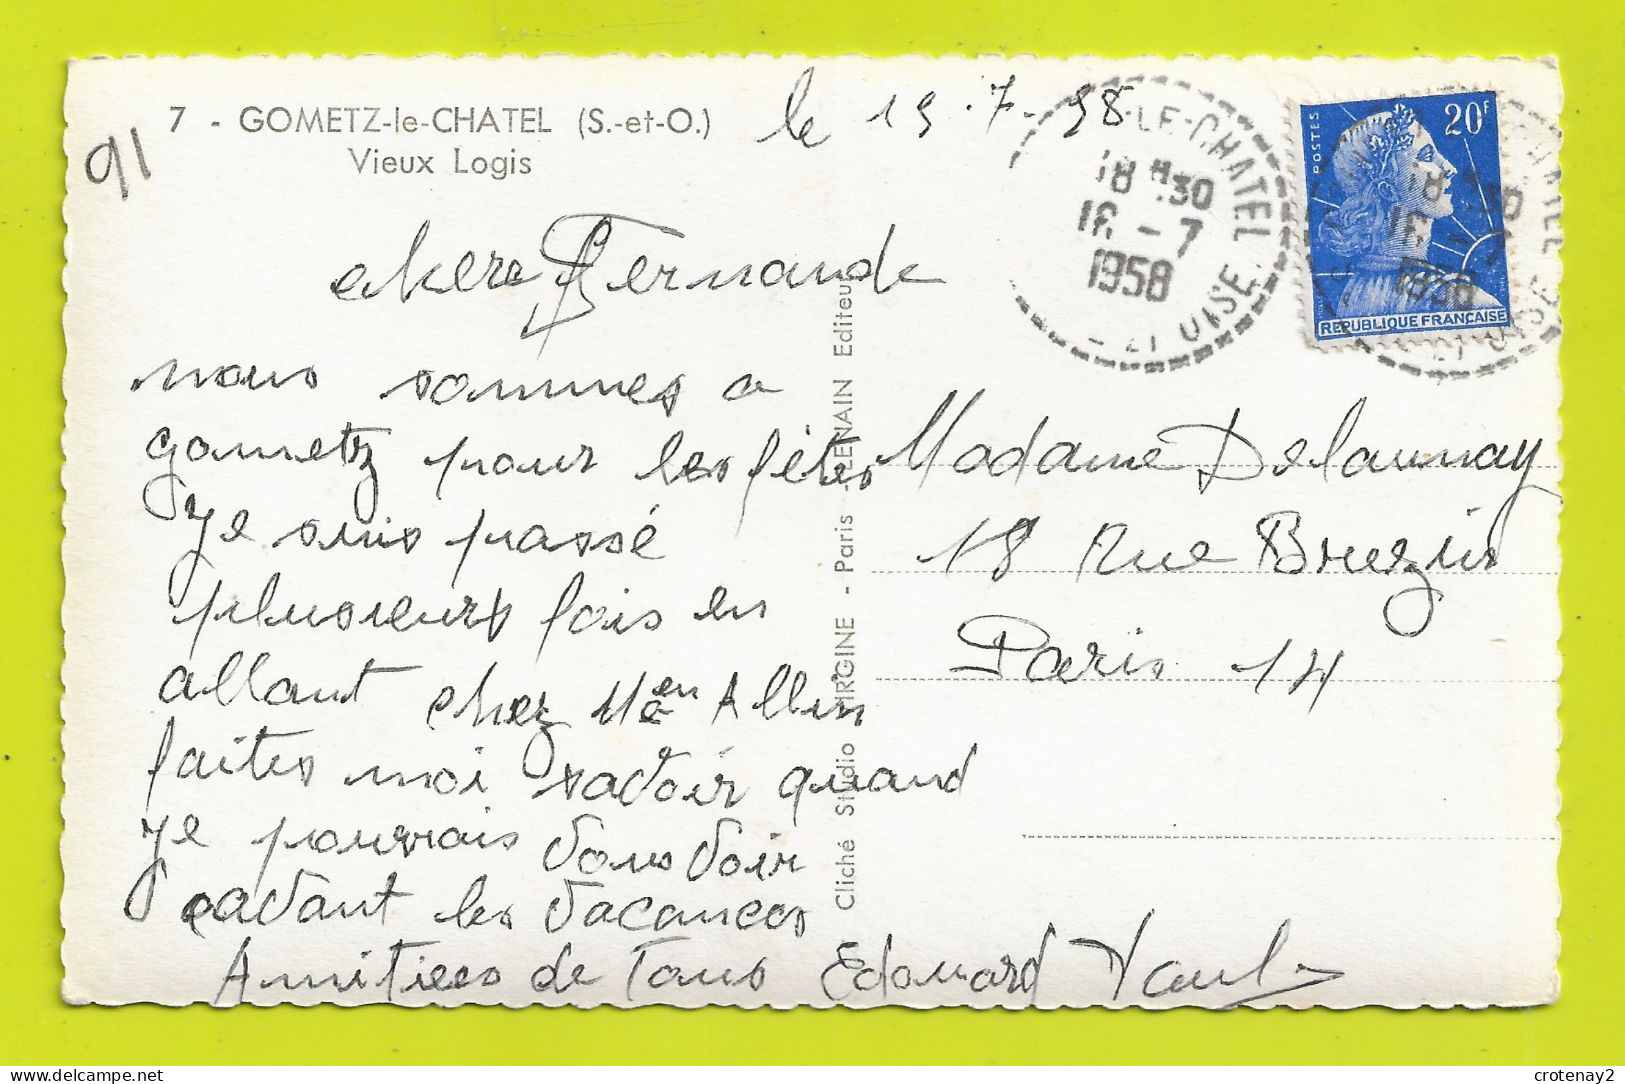 7 - GOMETZ-le-CHATEL (S.-et-O.)
Vieux Logis
91
le 15.7.58
chere Fernande
nous sommes a
gometz pour les fêtes
je suis passé
plusieurs fois en
allant chez Me en Allin
faites moi savoir quand
je pourrais vous voir
avant les vacances
Amitiees de Tous Edouard
Cliché Studio - Paris - LENAIN Editeur
-LE-CHATEL
18 H 30
16 - 7
1958
ET OISE
POSTES
20F
REPUBLIQUE FRANÇAISE
18 H 30
16 - 7
1958
ET OISE
Madame Delaunay
18 Rue Brezin
Paris 14
crotenay2